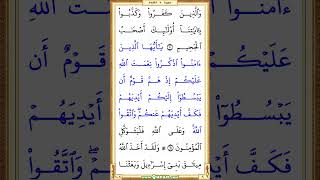 وَٱلَّذِينَ كَفَرُواْ وَكَذَّبُواْ
بِـَٔايَٰتِنَآ أُوْلَٰٓئِكَ أَصۡحَٰبُ
ٱلۡجَحِيمِ يَٰٓأَيُّهَا ٱلَّذِينَ
ءَامَنُواْ ٱذۡكُرُواْ نِعۡمَتَ ٱللَّهِ
عَلَيۡكُمۡ إِذۡ هَمَّ قَوۡمٌ أَن
يَبۡسُطُوٓاْ إِلَيۡكُمۡ أَيۡدِيَهُمۡ
فَكَفَّ أَيۡدِيَهُمۡ عَنكُمۡۖ وَٱتَّقُواْ
ٱللَّهَۚ وَعَلَى ٱللَّهِ فَلۡيَتَوَكَّلِ
ٱلۡمُؤۡمِنُونَ وَلَقَدۡ أَخَذَ ٱللَّهُ
مِيثَٰقَ بَنِيٓ إِسۡرَٰٓءِيلَ وَبَعَثۡنَا